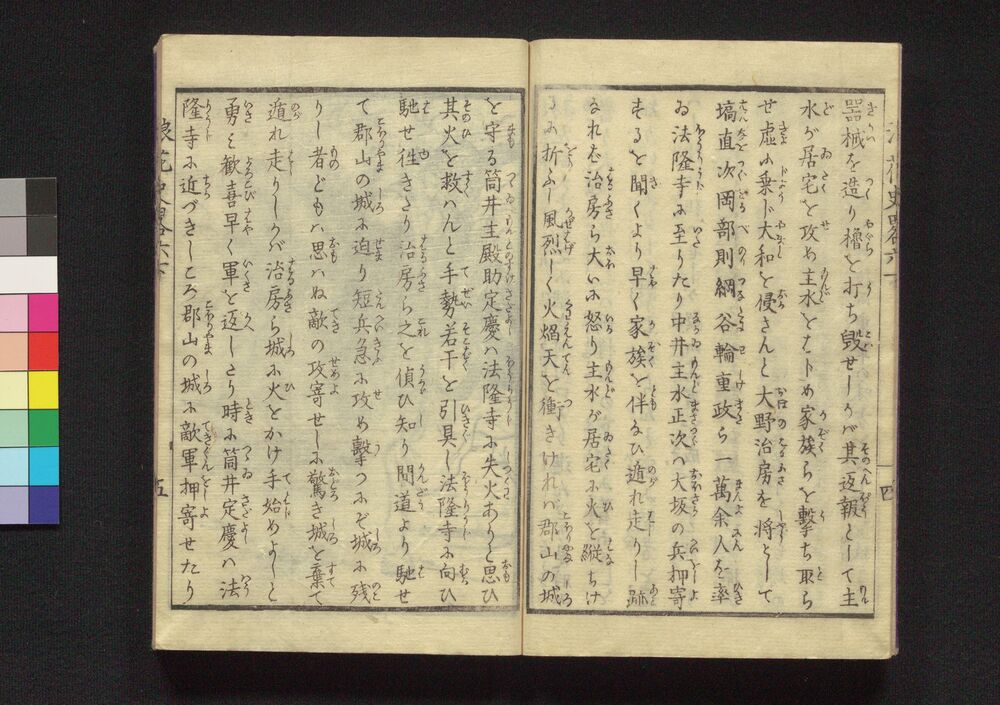 器械を造り櫓を打ち毀せしかバ其返報として主
水が居宅を攻め主水をはじめ家族らを撃ち取ら
せ虚に乗じ大和を侵さんと大野治房を将として
塙直次岡部則綱谷輪重政ら一萬余人を率
ゐ法隆寺に至りたり中井主水正次ハ大坂の兵押寄
するを聞くより早く家族を伴なひ遁れ走りし跡
なれバ治房ら大いに怒り主水が居宅に火を縦ちけ
るに折ふし風烈しく火焔天を衝きけれバ郡山の城
を守る筒井主殿助定慶ハ法隆寺に失火ありと思ひ
其火を救ハんと手勢若干を引具し法隆寺に向ひ
馳せ徃きたり治房ら之を偵ひ知り間道より馳せ
て郡山の城に迫り短兵急に攻め撃つにぞ城に残
りし者どもハ思ハぬ敵の攻寄せしに驚き城を棄て
遁れ走りしかバ治房ら城に火をかけ手始めよしと
勇ミ歓喜早く軍を返したり時に筒井定慶ハ法
隆寺に近づきしころ郡山の城に敵軍押寄せたり
浪花史略六下
四
五